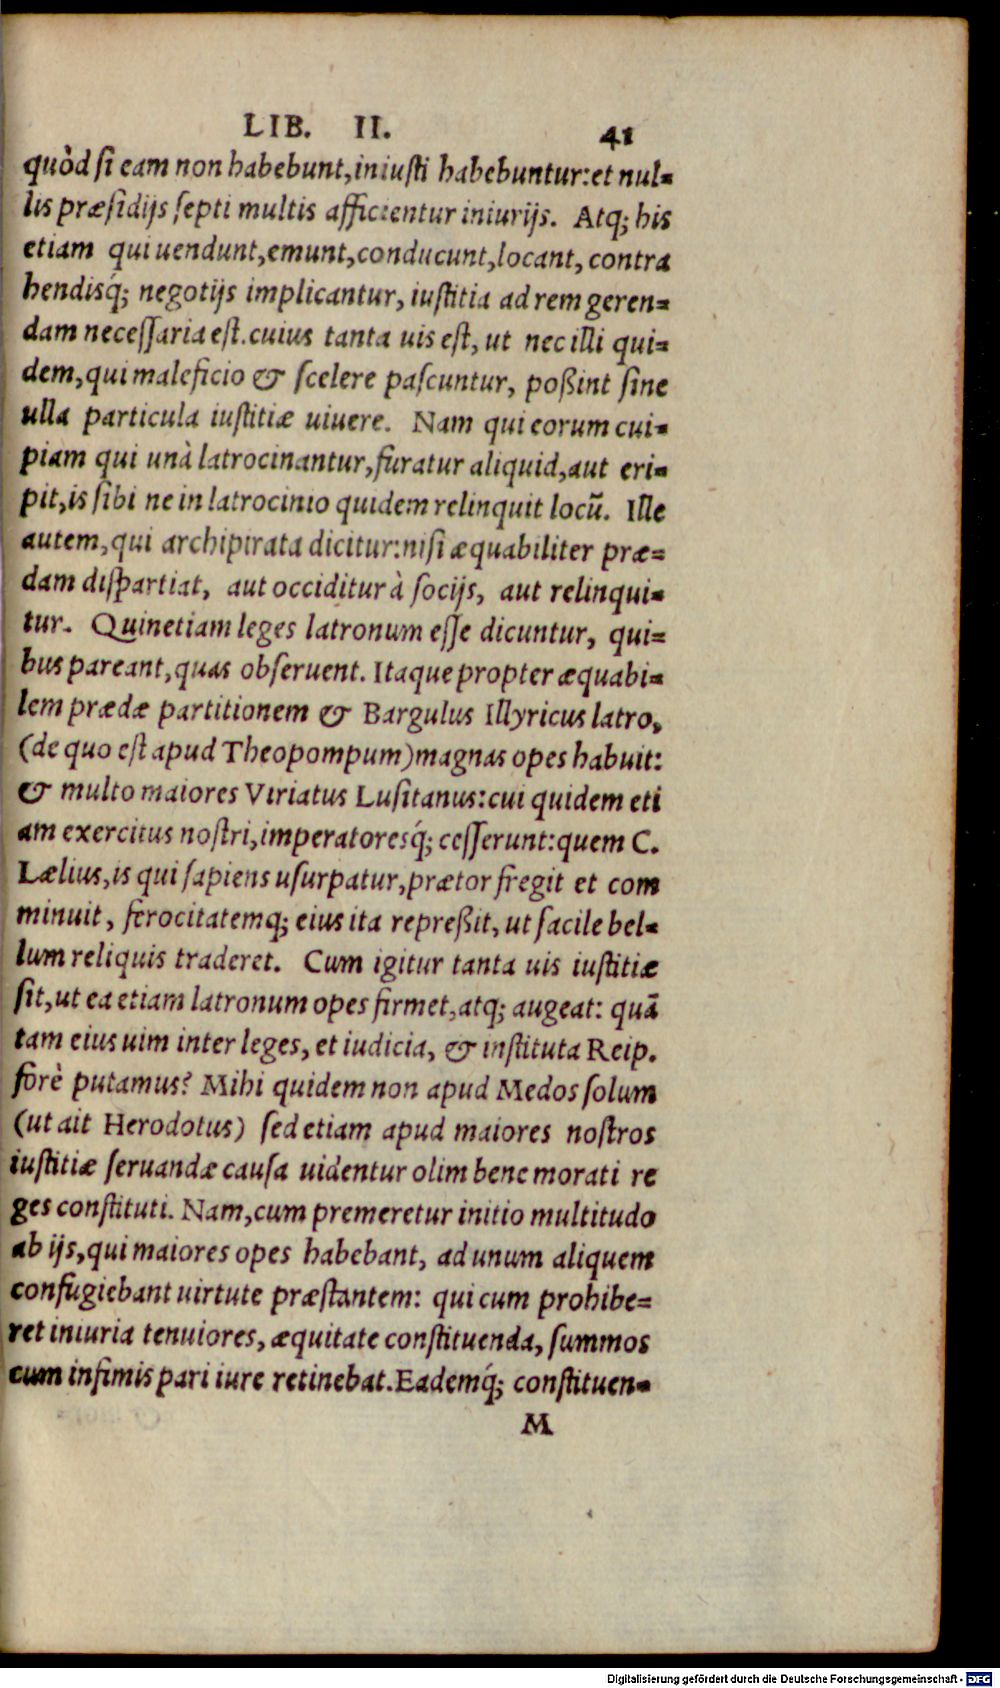 LIB. II. 41
quòd si eam non habebunt, iniusti habebuntur: et nul=
lis præsidijs septi multis afficientur iniurijs. Atq; his
etiam qui uendunt, emunt, conducunt, locant, contra
hendisq́; negotijs implicantur, iustitia ad rem geren=
dam necessaria est. cuius tanta uis est, ut nec illi qui=
dem, qui maleficio & scelere pascuntur, poßint sine
ulla particula iustitiæ uiuere. Nam qui eorum cui=
piam qui unà latrocinantur, furatur aliquid, aut eri=
pit, is sibi ne in latrocinio quidem relinquit locũ. Ille
autem, qui archipirata dicitur: nisi æquabiliter præ=
dam dispartiat, aut occiditur à socijs, aut relinqui=
tur. Quinetiam leges latronum esse dicuntur, qui=
bus pareant, quas obseruent. Itaque propter æquabi=
lem prædæ partitionem & Bargulus Illyricus latro,
(de quo est apud Theopompum) magnas opes habuit:
& multo maiores Viriatus Lusitanus: cui quidem eti
am exercitus nostri, imperatoresq́; cesserunt: quem C.
Lælius, is qui sapiens usurpatur, prætor fregit et com
minuit, ferocitatemq; eius ita repreßit, ut facile bel=
lum reliquis traderet. Cum igitur tanta uis iustitiæ
sit, ut ea etiam latronum opes firmet, atq; augeat: quã
tam eius uim inter leges, et iudicia, & instituta Reip.
forè putamus? Mihi quidem non apud Medos solum
(ut ait Herodotus) sed etiam apud maiores nostros
iustitiæ seruandæ causa uidentur olim bene morati re
ges constituti. Nam, cum premeretur initio multitudo
ab ijs, qui maiores opes habebant, ad unum aliquem
confugiebant uirtute præstantem: qui cum prohibe=
ret iniuria tenuiores, æquitate constituenda, summos
cum infimis pari iure retinebat. Eademq́; constituen=
M
Digitalisierung gefördert durch die Deutsche Forschungsgemeinschaft - DFG